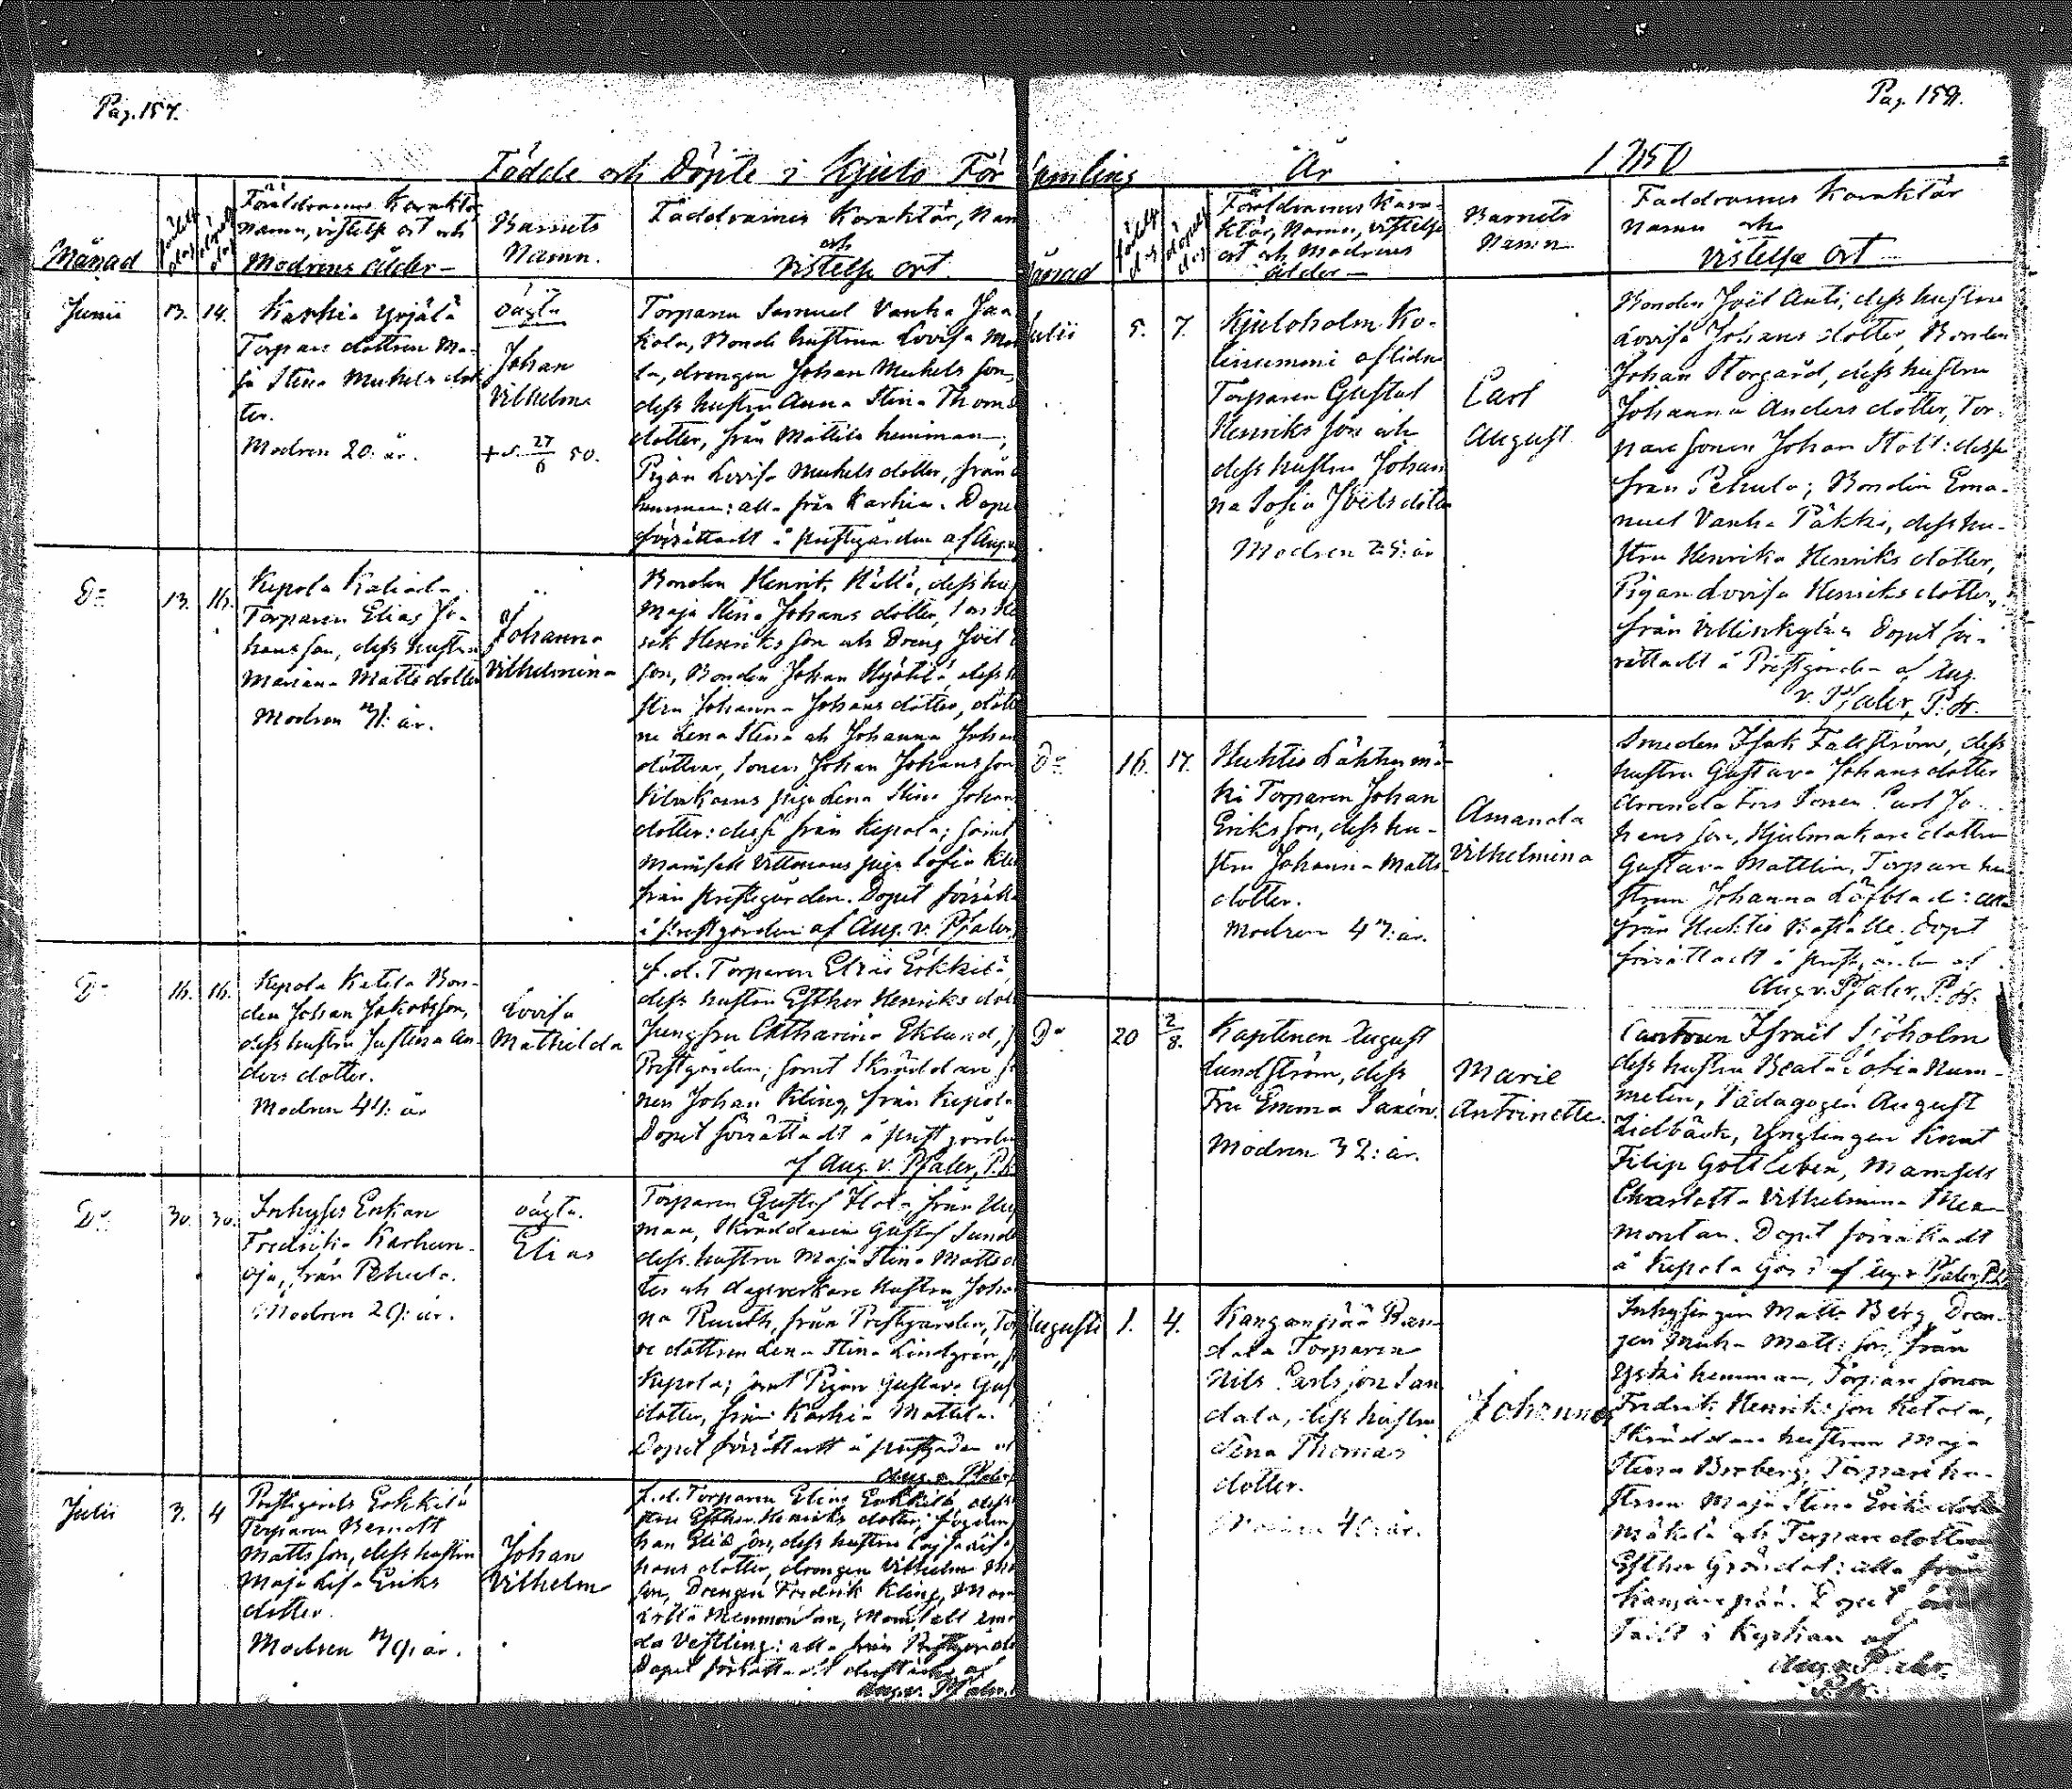 Pag. 157.
Födde och Döpte i Kjulo För
Månad
Föräldrarnes Karaktär
Namn, vistelse ort och
Modrens ålder
Barnets
Namn.
Faddrarnes Karaktär, Nam
och
vistelse ort.
Junii
13.
14.
Karhia Yrjälä
Torpare dottren Ma-
ja Stina Mickels dot
ter.
Modren 20: år.
oägta
Johan
Vilhelm
+ d. 27/6 50.
Torparen Samuel Vanha Jaa
kola, Bonde hustrun Lovisa Mat
la, drengen Johan Mickels son,
dess hustru Anna Stina Thoma
dotter, från Mattila hemman;
Pigan Lovisa Mickels dotter, från
hemman: alla från Karhia. Dopet
förrättadt i prestgården af Aug. v
Do
13.
16.
Kepola
Torparen Elias Jo-
hans son, dess hustru
Mariana Matts dotter
Modren 41: år.
Johanna
Vilhelmina
Bonden Henrik Hälli, dess hu
Maja Stina Johans dotter,
rik Henriks son och Dreng Joël
son, Bonden Johan dess h
stru Johanna Johans dotter, dött
ne Lena Stina och Johanna Johan
döttrar, Sonen Johan Johans son
piga Lena Stina Johan
dotter: desse från Kepola; samt
Mamsell Vittmans piga Sofia
från prestgården. Dopet förrätt
i prestgården af Aug. v. Pfaler,
Do
16.
16.
Kepola Ketola Bon-
den Johan Jakobsson,
dess hustru Justina An-
ders dotter.
Modren 44: år
Lovisa
Mathilda
f. d. Torparen Elias Erkkilä,
dess hustru Esther Henriks dot
Jungfru Catharina Eklund,
Prestgården; samt Skräddare so
nen Johan Kling, från Kepola
Dopet förrättadt i prestgården
af Aug. v. Pfaler, P. A.
Do
30.
30.
Inhyses Enkan
Fredrika Karhun-
oja, från Pehula.
Modren 29: år.
oägta.
Elias
Torparen Gustaf från
Skräddaren Gustaf Sund
dess hustru Maja Stina Matts d
ter och dagsverkare hustru Joha
na Ruuth, från Prestgården, Tor
re dottren Lena Stina Lindgrén,
Kepola; samt Pigan Gustava Gus
dotter, från Karhia Mattila.
Dopet förrättadt i prestgården af
Aug. v. Pfaler
Julii
3.
4
Prestgårds Erkkilä
Torparen Berndt
Matts son, dess hustru
Maja Lisa Eriks
dotter.
Modren 41 år.
Johan
Vilhelm
f. d. Torparen Elias Erkkilä, dess
stru Esther Henriks dotter,
han Elia son, dess hustru
hans dotter, drengen Vilhelm
son, Drengen Fredrik Kling,
Mamsell
da Vestling: alla från Prestgården
Dopet förrättadt af
Aug. v. Pfaler.
Pag. 158.
samling År 1850
Månad
Föräldrarnes Karak-
tär, Namn, vistelse
ort och Modrens
ålder
Barnets
Namn
Faddrarnes Karaktär
Namn och
vistelse ort
Julii
5.
7.
Kjuloholm Ko-
linummi aflidne
Torparen Gustaf
Henriks son och
dess hustru Johan
na Sofia Joëls dotter
Modren 25: år
Carl
August
Bonden Joël Anti, dess hustru
Lovisa Johans dotter, Bonden
Johan Storgård, dess hustru
Johanna Anders dotter, Tor-
pare sonen Johan Stolt: desse
från Pehula; Bonden Ema-
nuel Vanha Päkki, dess hu-
stru Henrika Henriks dotter,
Pigan Lovisa Henriks dotter,
från Villinkylä. Dopet för-
rättadt i Prestgården af Aug.
v. Pfaler, P. A.
Do
16.
17.
Huhtis Lähtenmä-
ki Torparen Johan
Eriks son, dess hu-
stru Johanna Matts
dotter.
Modren 47: år.
Amanda
Vilhelmina
Smeden Isak Fallström, dess
hustru Gustava Johans dotter
Arrendators Sonen Carl Jo-
hans son, Hjulmakare dottren
Gustava Mattlin, Torpare hu-
strun Johanna Löfblad: alla
från Huhtis Kastelle. Dopet
förrättadt i prestgården af
Aug. v. Pfaler, P. A.
Do
20
2/8.
Kaptenen August
Lundström, dess
Fru Emma Saxén.
Modren 32: år.
Marie
Antoinette.
Cantorn Israël Sjöholm
dess hustru Beata Sofia Num-
melin, Pädagogen August
Lidbäck, Ynglingen Knut
Filip Gottleben, Mamsell
Charlotta Vilhelmina
Dopet förrättadt
å Kepola gård af Aug. v. Pfaler, P. A.
Augusti
1.
4.
Kanganpää Ran-
dala Torparen
Nils Carls son San
dala, dess hustru
Lena Thomas
dotter.
Modren 40: år.
Johannes
Inhysingen Matts Berg, Dren-
gen Matts son, från
Yski hemman, Torpare sonen
Fredrik Henriks son Ketola,
Skräddare hustrun Maja
Stina Broberg, Torpare hu-
strun Maja Stina Eriks dotter
Mäkelä och Torpare dottren
Esther Gröndal: alla från
Kanganpää. Dopet förrät-
tadt i Kyrkan af
Aug. v. Pfaler.
P. A.